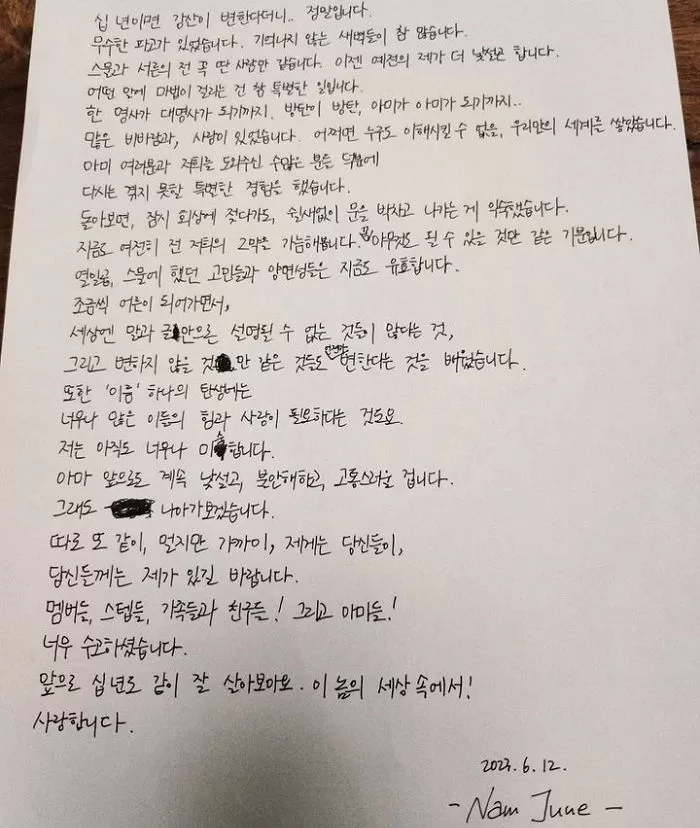 십 년이면 강산이 변한다더니.. 정말입니다.
무수한 파고가 있었습니다. 기억나지 않는 새벽들이 참 많습니다.
스물과 서른의 전 꼭 딴 사람만 같습니다. 이젠 예전의 제가 더 낯설곤 합니다.
어떤 말에 마법이 걸리는 건 참 특별한 일입니다.
한 명사가 대명사가 되기까지. 방탄이 방탄, 아미가 아미가 되기까지..
많은 비바람과, 사랑이 있었습니다. 어쩌면 누구도 이해시킬 수 없을, 우리만의 세계를 쌓았습니다.
아미 여러분과 저희를 도와주신 수많은 분들 덕분에
다시는 겪지 못할 특별한 경험을 했습니다.
돌아보면, 잠시 회상에 젖다가도, 쉴새없이 문을 박차고 나가는 게 익숙했습니다.
지금도 여전히 전 저희의 2막을 가늠해봅니다. 뭐 아무것도 될 수 있을 것만 같은 기분입니다.
열일곱, 스물에 했던 고민들과 양면성들은 지금도 유효합니다.
조금씩 어른이 되어가면서,
세상엔 말과 글만으로 설명될 수 없는 것들이 많다는 것,
그리고 변하지 않을 것만 같은 것들도 언젠가 변한다는 것을 배웠습니다.
또한 '이름' 하나의 탄생에는
너무나 많은 이들의 힘과 사랑이 필요하다는 것도요.
저는 아직도 너무나 미숙합니다.
아마 앞으로도 계속 낯설고, 불안해하고, 고통스러울 겁니다.
그래도 나아가보겠습니다.
따로 또 같이, 멀지만 가까이, 제게는 당신들이,
당신들께는 제가 있길 바랍니다.
멤버들, 스텝들, 가족들과 친구들! 그리고 아미들!
너무 수고하셨습니다.
앞으로 십 년도 같이 잘 살아보아요. 이 놈의 세상 속에서!
사랑합니다.
2023. 6. 12.
- Nam June -